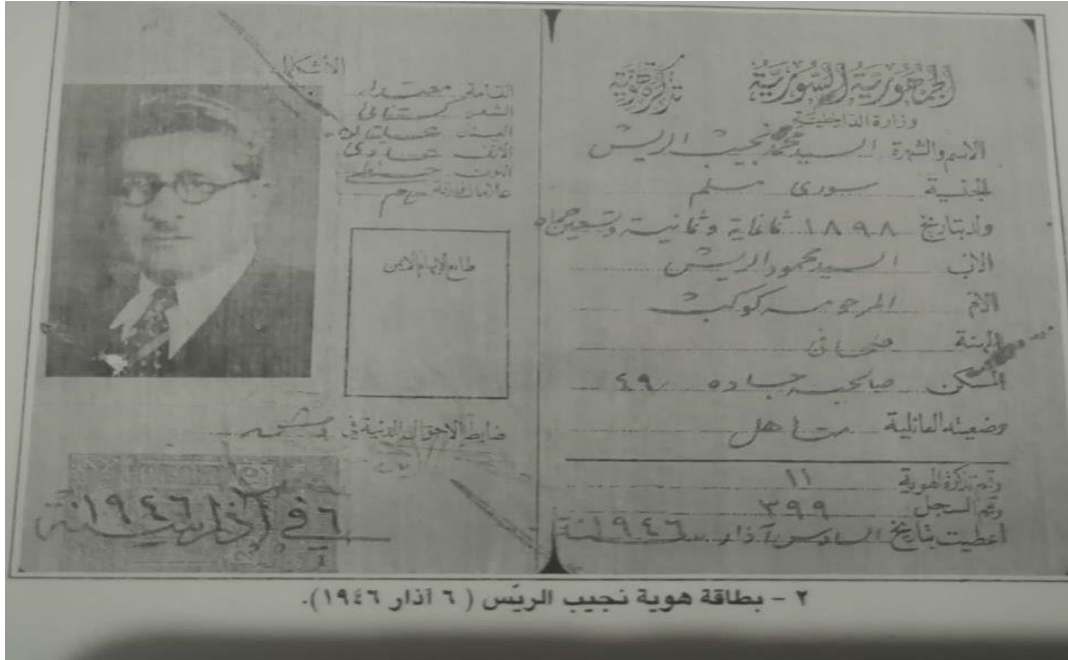 الجمهورية السورية
تذكرة هوية
وزارة الداخلية
الاسم والشهرة السيد محمد نجيب الريس
الجنسية سوري مسلم
ولد بتاريخ ١٨٩٨ ثمانماية وثمانية وتسعين حماه
الاب السيد محمود الريس
الام المرحومه كوكب
المهنة صحافي
المسكن صالحيه جاده ٤٩
وضعيته العائلية متاهل
رقم تذكرة الهوية ١١
رقم السجل ٣٩٩
اعطيت بتاريخ السادس آذار سنة ١٩٤٦
الأشكال
القامة معتدله
الشعر كستنائي
العينان عسليتان
الانف عادي
اللون حنطي
علامات فارقة
طابع الإبهام الايمن
ضابط الاحوال المدنية في دمشق
٦ في آذار سنة ١٩٤٦
٢ - بطاقة هوية نجيب الريّس ( ٦ آذار ١٩٤٦).